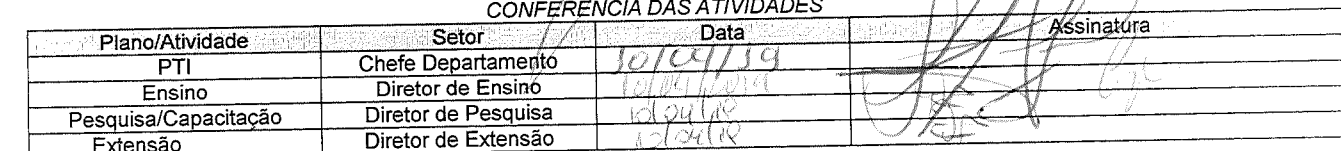 CONFERÊNCIA DAS ATIVIDADES
Plano/Atividade Setor Data Assinatura
PTI Chefe Departamento 10/04/19
Ensino Diretor de Ensino 10/04/2019
Pesquisa/Capacitação Diretor de Pesquisa 10/04/19
Extensão Diretor de Extensão